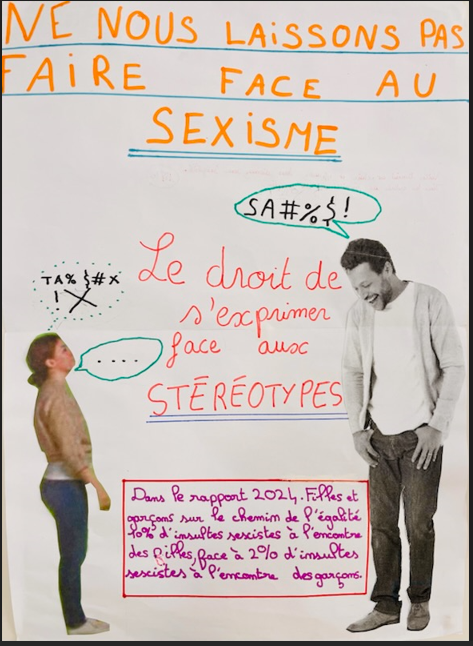 NE NOUS LAISSONS PAS
FAIRE FACE AU
SEXISME
SA#%}!
Le droit de
s'exprimer
face aux
STÉRÉOTYPES
TA% }#X
!X
....
Dans le rapport 2024. Filles et
garçons sur le chemin de l'égalité
10% d'insultes sexistes à l'encontre
des filles, face à 2% d'insultes
sexcistes à l'encontre des garçons.